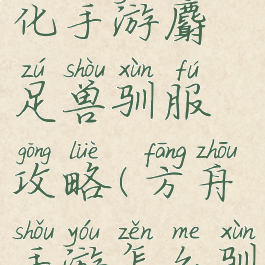 化手游麝
zú shòu xùn fú
足兽驯服
gōng lüè fāng zhōu
攻略(方舟
shǒu yóu zěn me xùn
手游怎么驯